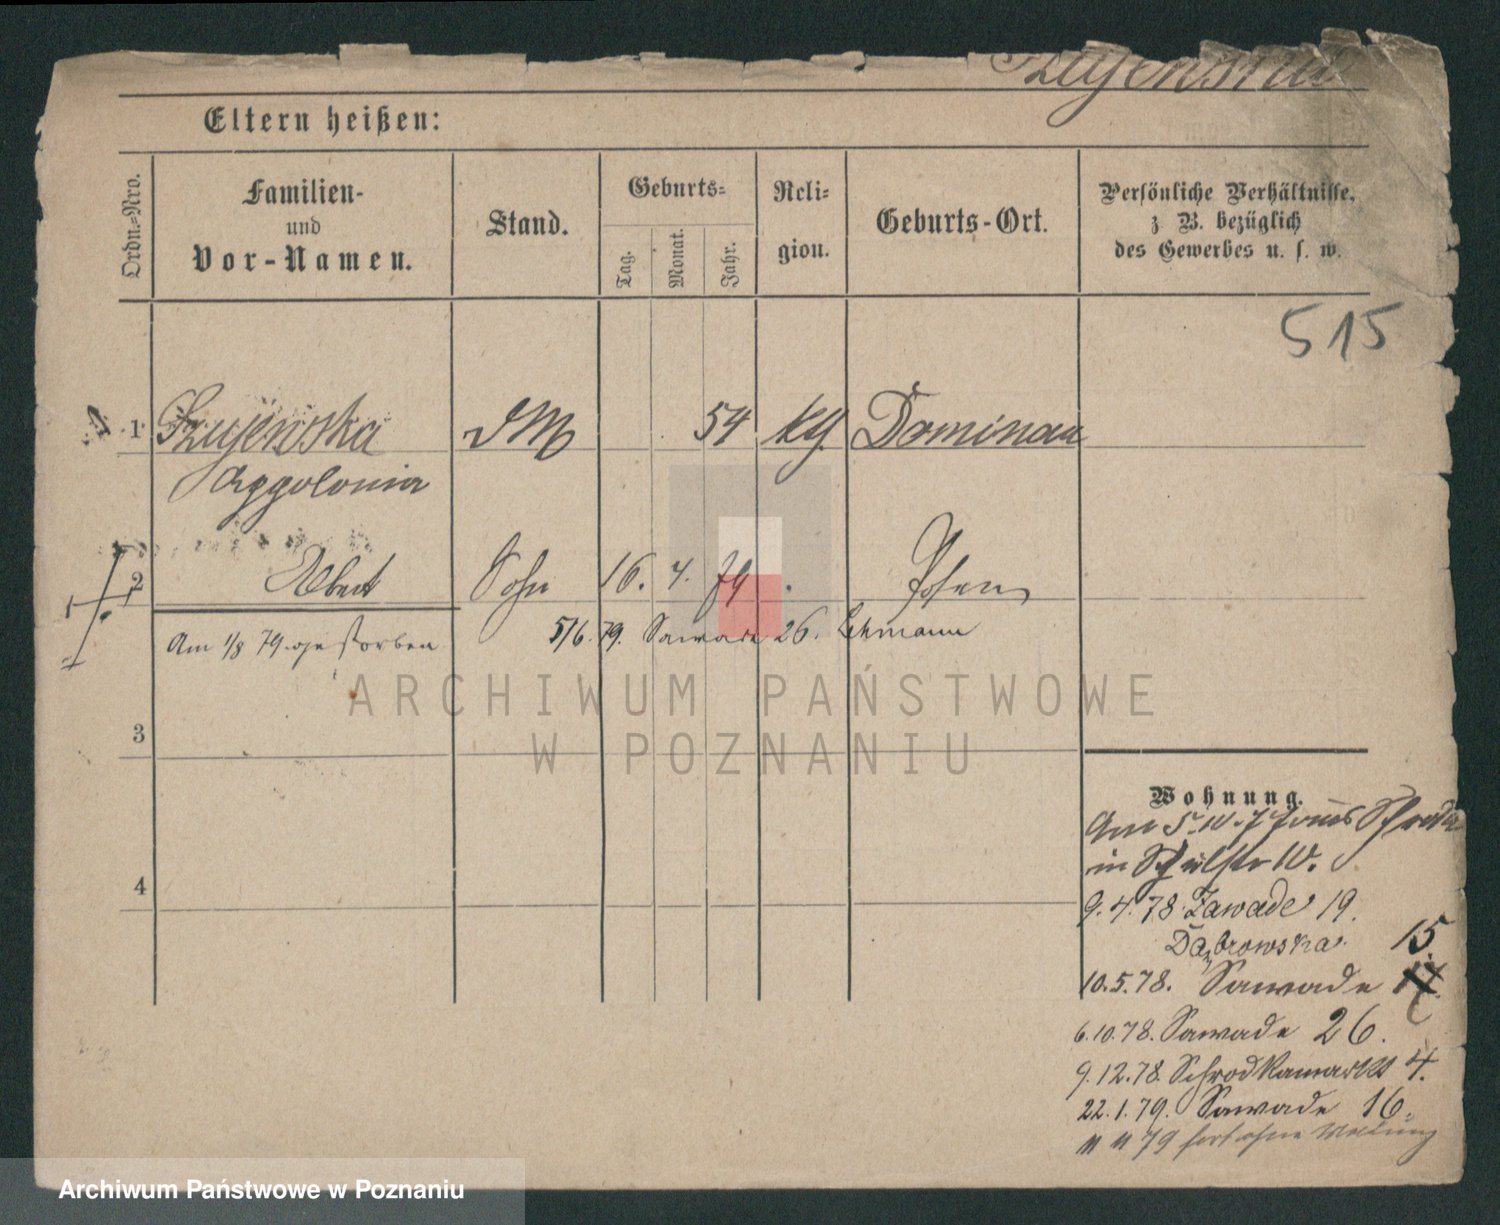 Szujenska
Eltern heißen:
Ordn.=Nro.
Familien-
und
Vor-Namen.
Stand.
Geburts=
Tag.
Monat.
Jahr.
Reli=
gion.
Geburts-Ort.
Persönliche Verhältnisse,
z. B. bezüglich
des Gewerbes u. s. w.
515
1 Szujenska DM 54 kg. Dominau
Appolonia
2 Albert Sohn 16. 4. 79 Posen
Am 1/8 79 gestorben
5/6. 79. Zawade 26. Lehmann
3
4
Wohnung.
Am 5. 10. 77 aus Schroda
in Schulstr 10.
9. 4. 78. Zawade 19.
Dąbrowska. 15.
10. 5. 78. Zawade
6. 10. 78. Zawade 26.
9. 12. 78. Schrodkamarkt 4.
22. 1. 79. Zawade 16.
11 11 79 fort ohne Meldung
ARCHIWUM PAŃSTWOWE
W POZNANIU
Archiwum Państwowe w Poznaniu